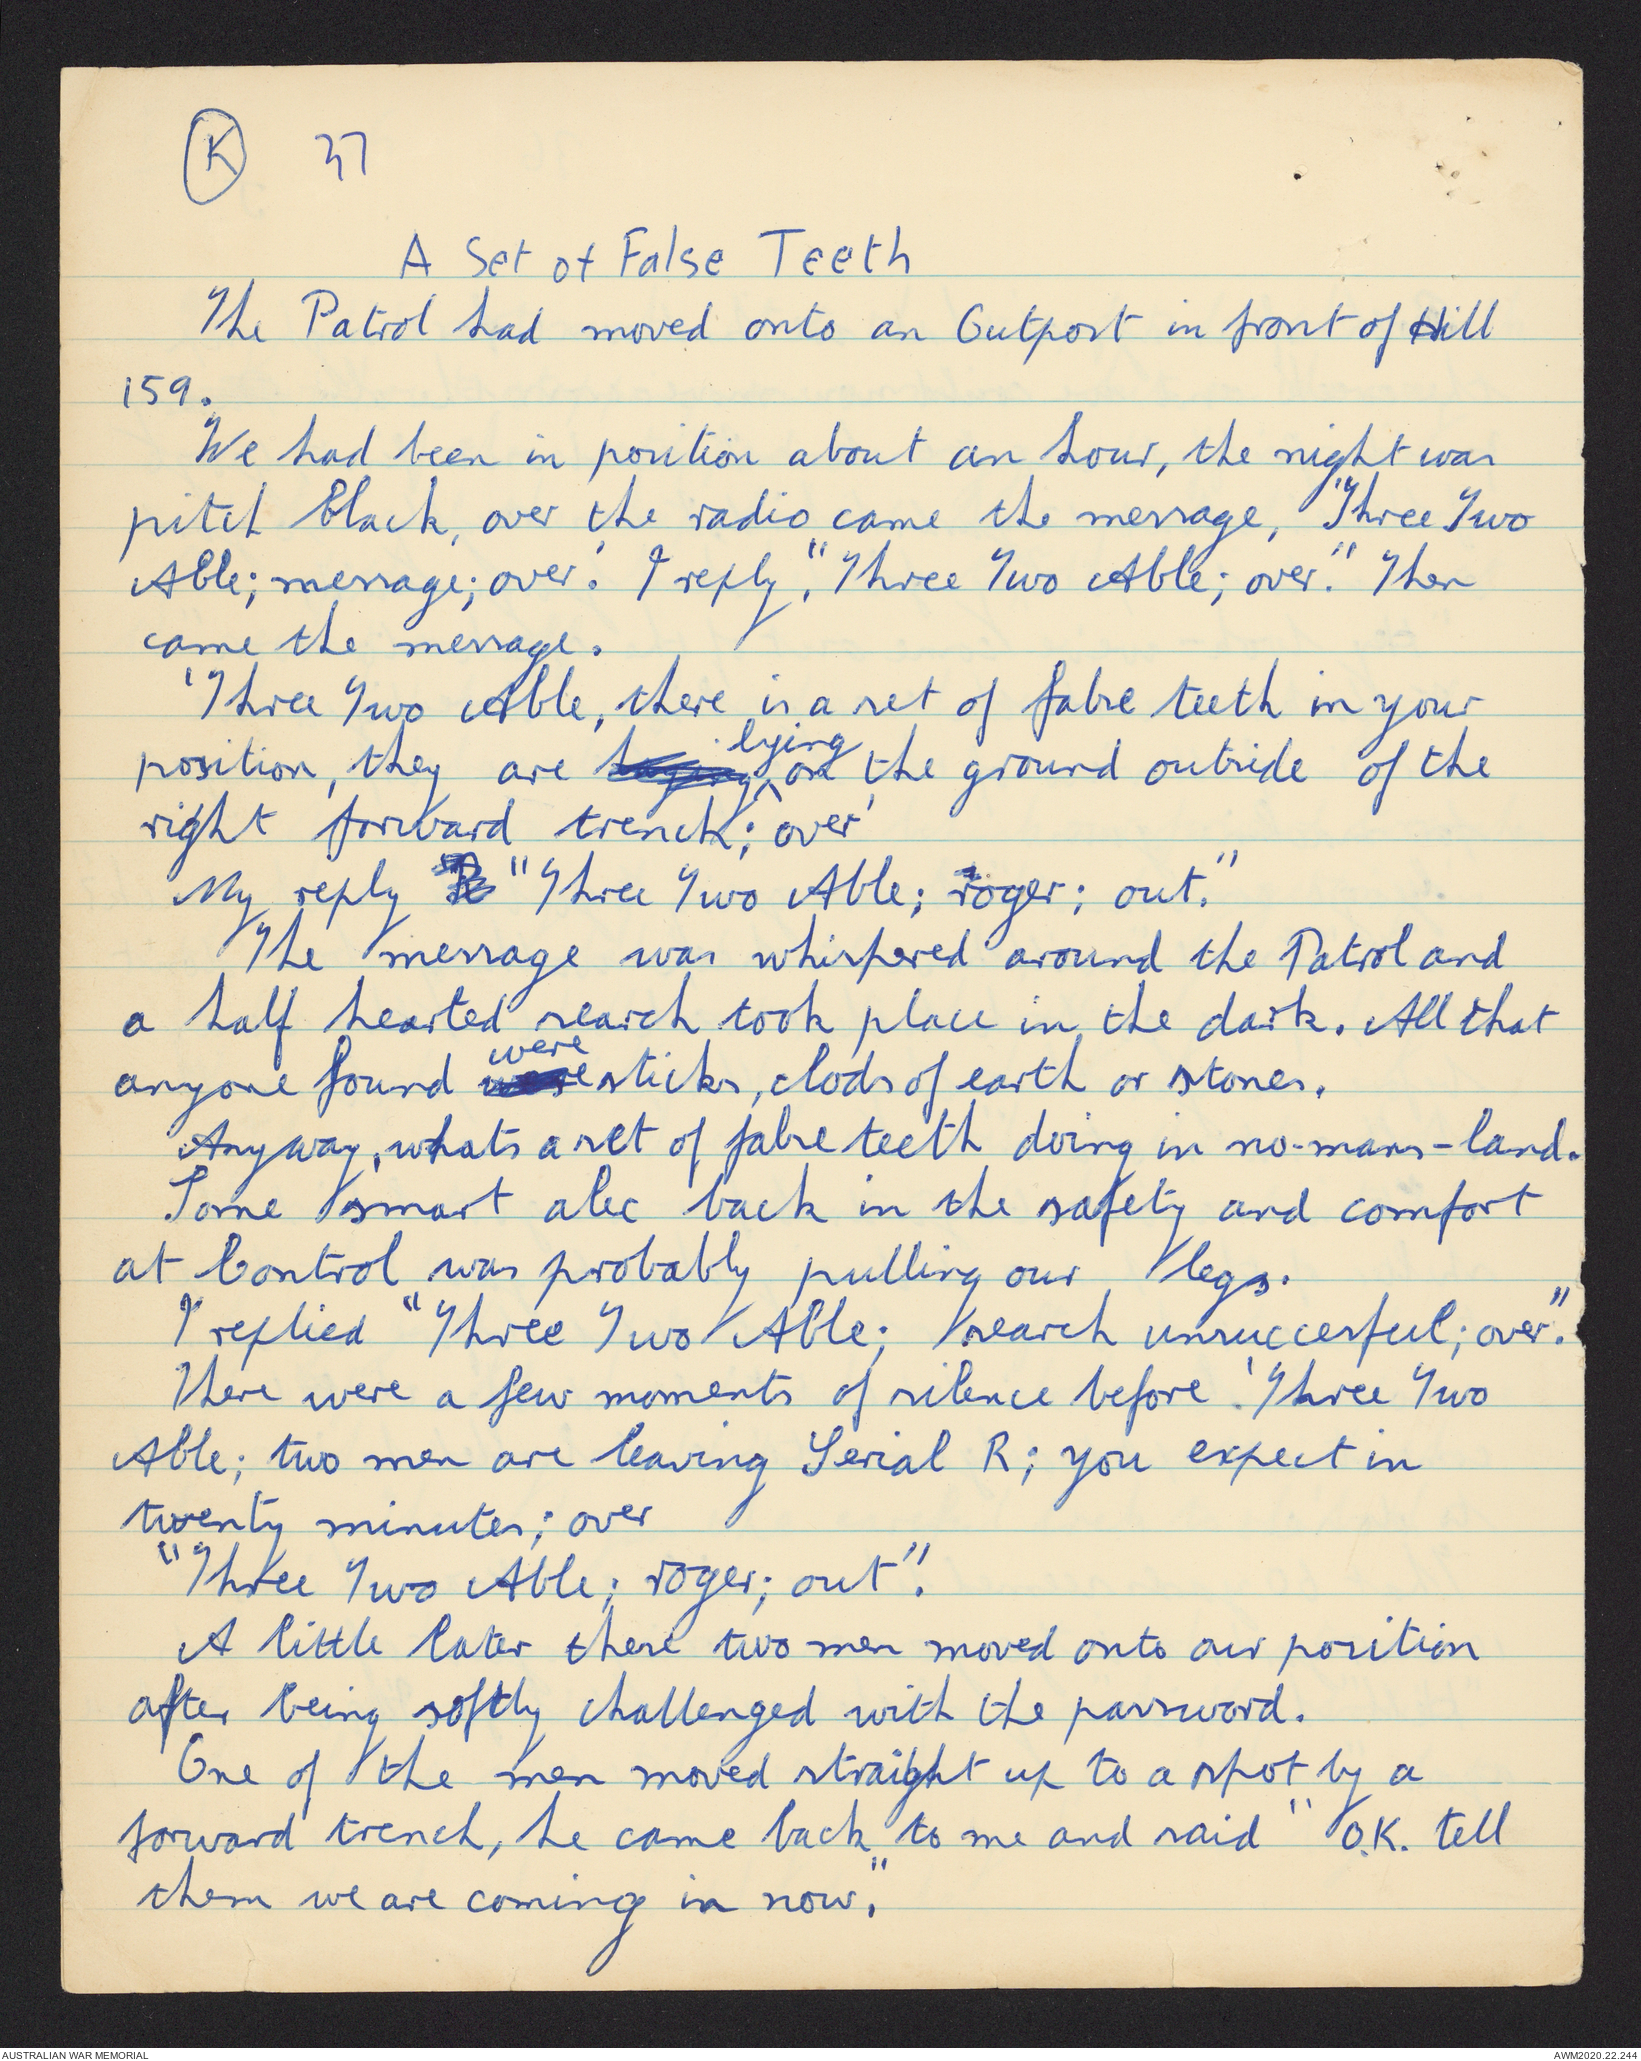 K 37
A Set of False Teeth
The Patrol had moved onto an Outpost in front of Hill
159.
We had been in position about an hour, the night was
pitch black, over the radio came the message, "Three Two
Able; message; over." I reply, "Three Two Able; over." Then
came the message.
'Three Two Able, there is a set of false teeth in your
position, they are lying on the ground outside of the
right forward trench; over'
My reply "Three Two Able; roger; out."
The message was whispered around the Patrol and
a half hearted search took place in the dark. All that
anyone found were sticks, clods of earth or stones.
Anyway, whats a set of false teeth doing in no-mans-land.
Some smart alec back in the safety and comfort
at Control was probably pulling our legs.
I replied "Three Two Able; search unsuccessful; over."
There were a few moments of silence before 'Three Two
Able; two men are leaving Serial R; you expect in
twenty minutes; over
"Three Two Able; roger; out".
A little later these two men moved onto our position
after being softly challenged with the password.
One of the men moved straight up to a spot by a
forward trench, he came back to me and said "O.K. tell
them we are coming in now."
AUSTRALIAN WAR MEMORIAL
AWM2020.22.244